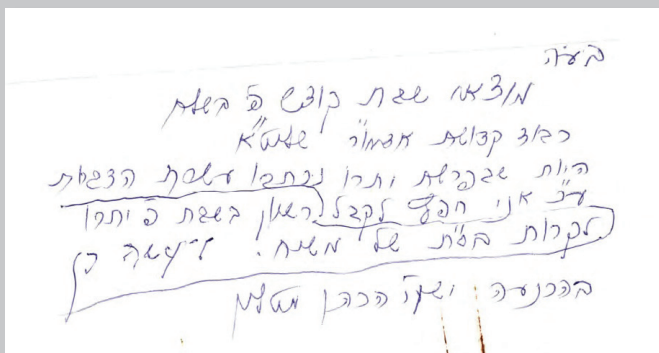 בעה
מוצאי שבת קודש פ' בשלח
כבוד קדושת אדמו"ר שליט"א
היות שבפרשת יתרו נכתבו עשרת הדברות
ע"כ אני חפץ לקבל רשיון בשבת פ' יתרו
לקרות בס"ת של משיח.
בהכנעה הכהן